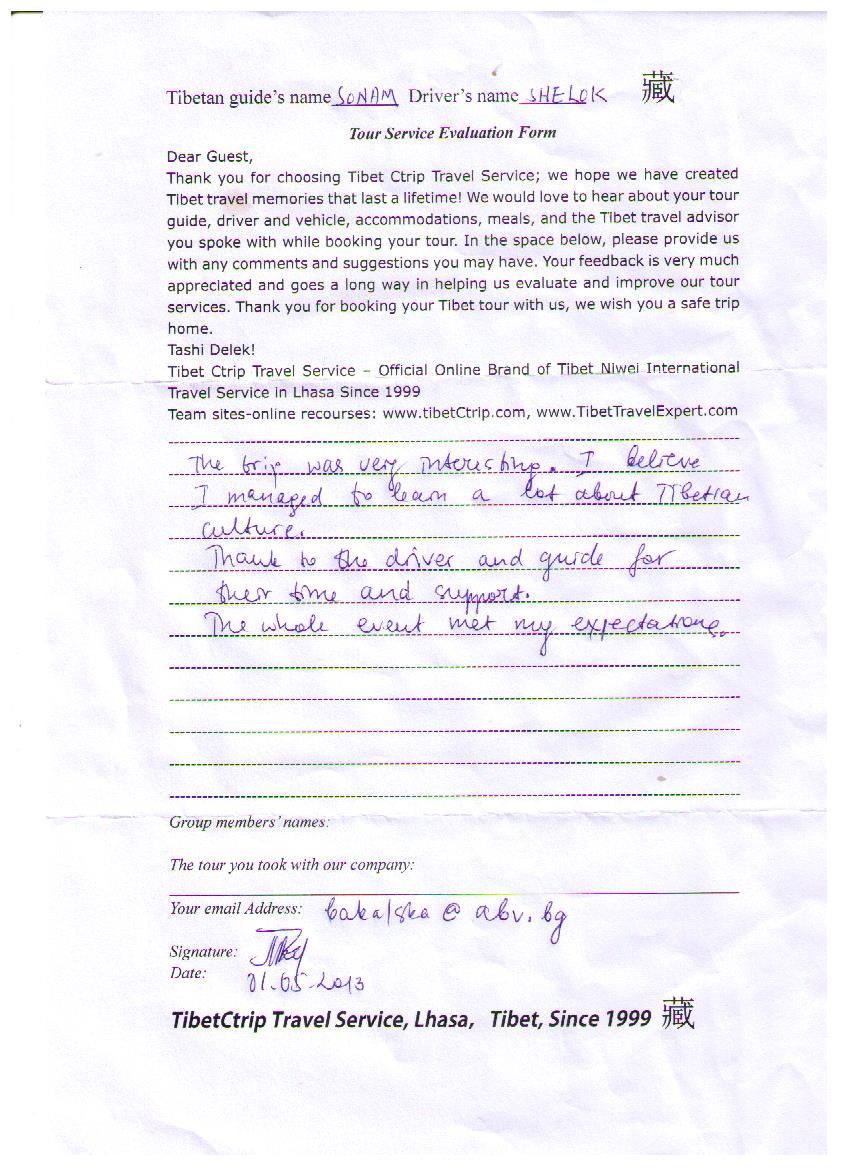 Tibetan guide's name SONAM Driver's name SHELOK 藏
Tour Service Evaluation Form
Dear Guest,
Thank you for choosing Tibet Ctrip Travel Service; we hope we have created
Tibet travel memories that last a lifetime! We would love to hear about your tour
guide, driver and vehicle, accommodations, meals, and the Tibet travel advisor
you spoke with while booking your tour. In the space below, please provide us
with any comments and suggestions you may have. Your feedback is very much
appreciated and goes a long way in helping us evaluate and improve our tour
services. Thank you for booking your Tibet tour with us, we wish you a safe trip
home.
Tashi Delek!
Tibet Ctrip Travel Service – Official Online Brand of Tibet Niwei International
Travel Service in Lhasa Since 1999
Team sites-online recourses: www.tibetCtrip.com, www.TibetTravelExpert.com
The trip was very interesting. I believe
I managed to learn a lot about Tibetian
culture.
Thank to the driver and guide for
their time and support.
The whole event met my expectations.
Group members' names:
The tour you took with our company:
Your email Address: bakalska@abv.bg
Signature:
Date: 01.05.2013
TibetCtrip Travel Service, Lhasa, Tibet, Since 1999 藏